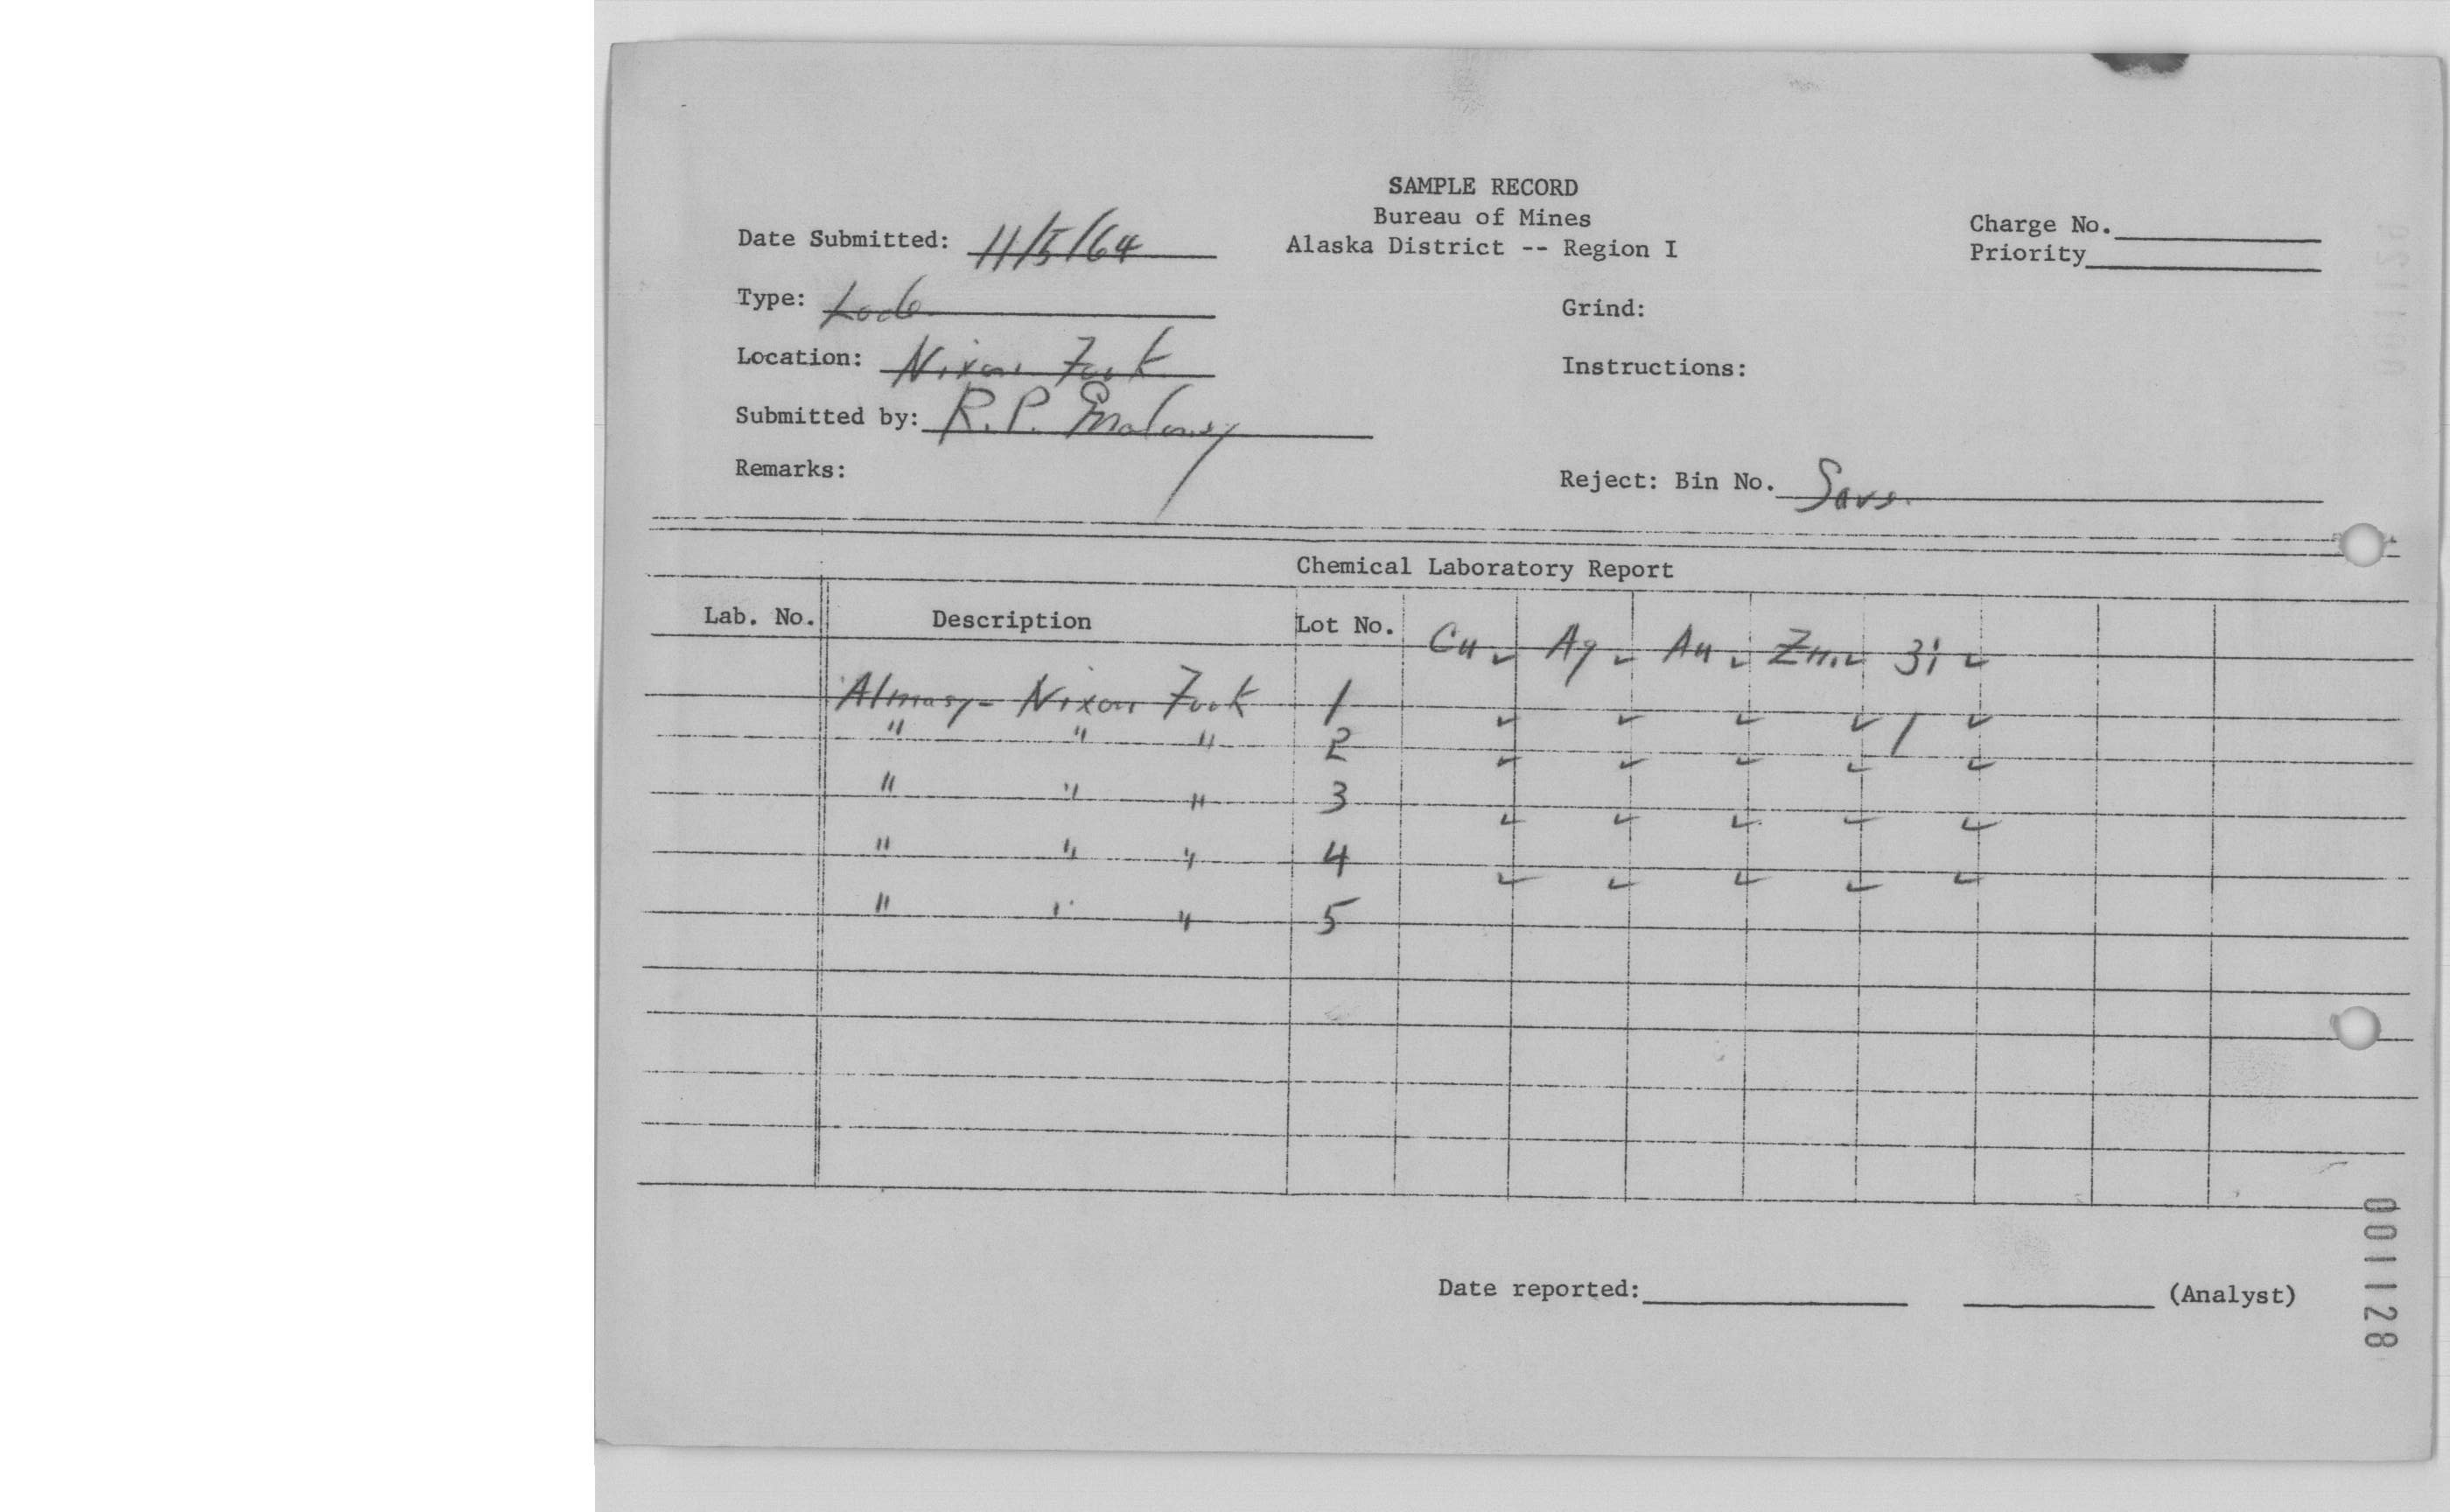 SAMPLE RECORD
Bureau of Mines
Alaska District -- Region I
Charge No.
Priority
Date Submitted: 11/5/64
Type: Lode
Grind:
Location: Nixon Fork
Instructions:
Submitted by: R.P. Maloney
Remarks:
Reject: Bin No. Save
Chemical Laboratory Report
Lab. No. Description Lot No. Cu ✓ Ag ✓ Au ✓ Zn. ✓ Bi ✓
Almasy - Nixon Fork 1 ✓ ✓ ✓ ✓ ✓
" " " 2 ✓ ✓ ✓ ✓ ✓
" " " 3 ✓ ✓ ✓ ✓ ✓
" " " 4 ✓ ✓ ✓ ✓ ✓
" " " 5
Date reported: (Analyst)
001128